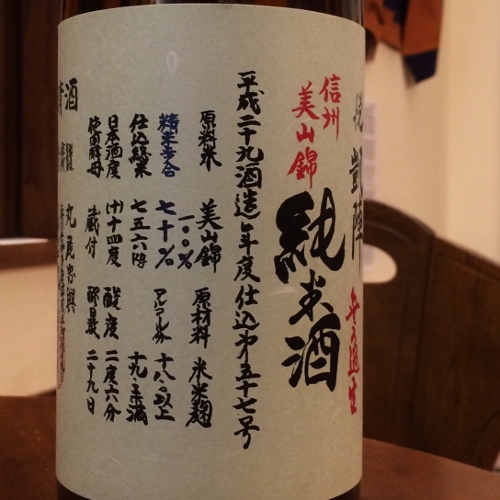 悦凱陣
信州
美山錦
純米酒
平成二十九酒造年度仕込第五十七号
原料米 美山錦 一〇〇% 原材料 米米麹
精米歩合 七十% アルコール分 十八.〇以上十九.〇未満
仕込総米 七五六瓩
日本酒度 (+)十四度 酸度 二度六分
使用酵母 蔵付 醪日数 二十九日
丸尾忠興